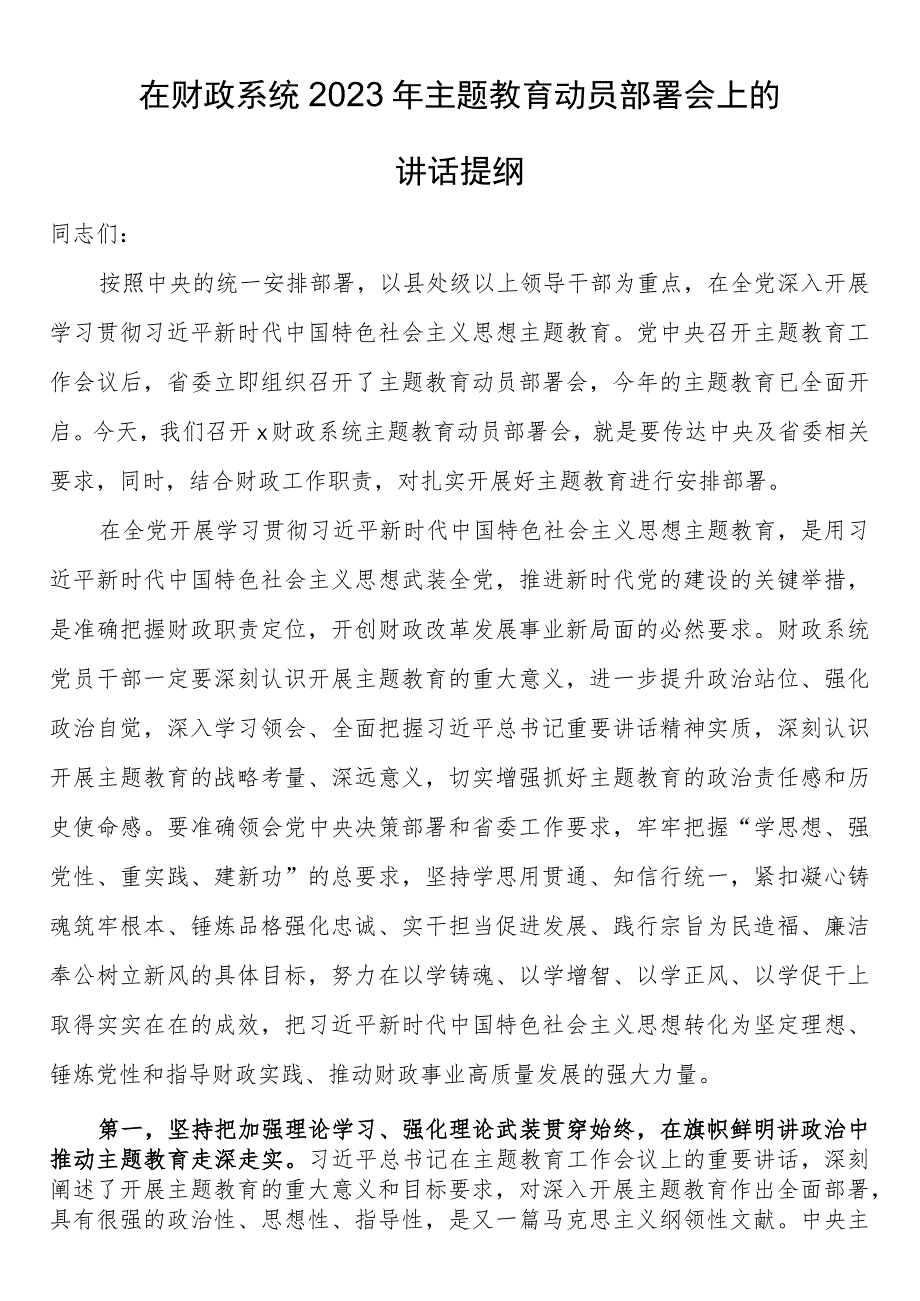 在财政系统 2023 年主题教育动员部署会上的
讲话提纲
同志们：
按照中央的统一安排部署，以县处级以上领导干部为重点，在全党深入开展
学习贯彻习近平新时代中国特色社会主义思想主题教育。党中央召开主题教育工
作会议后，省委立即组织召开了主题教育动员部署会，今年的主题教育已全面开
启。今天，我们召开x财政系统主题教育动员部署会，就是要传达中央及省委相关
要求，同时，结合财政工作职责，对扎实开展好主题教育进行安排部署。
在全党开展学习贯彻习近平新时代中国特色社会主义思想主题教育，是用习
近平新时代中国特色社会主义思想武装全党，推进新时代党的建设的关键举措，
是准确把握财政职责定位，开创财政改革发展事业新局面的必然要求。财政系统
党员干部一定要深刻认识开展主题教育的重大意义，进一步提升政治站位、强化
政治自觉，深入学习领会、全面把握习近平总书记重要讲话精神实质，深刻认识
开展主题教育的战略考量、深远意义，切实增强抓好主题教育的政治责任感和历
史使命感。要准确领会党中央决策部署和省委工作要求，牢牢把握“学思想、强
党性、重实践、建新功”的总要求，坚持学思用贯通、知信行统一，紧扣凝心铸
魂筑牢根本、锤炼品格强化忠诚、实干担当促进发展、践行宗旨为民造福、廉洁
奉公树立新风的具体目标，努力在以学铸魂、以学增智、以学正风、以学促干上
取得实实在在的成效，把习近平新时代中国特色社会主义思想转化为坚定理想、
锤炼党性和指导财政实践、推动财政事业高质量发展的强大力量。
第一，坚持把加强理论学习、强化理论武装贯穿始终，在旗帜鲜明讲政治中
推动主题教育走深走实。习近平总书记在主题教育工作会议上的重要讲话，深刻
阐述了开展主题教育的重大意义和目标要求，对深入开展主题教育作出全面部署，
具有很强的政治性、思想性、指导性，是又一篇马克思主义纲领性文献。中央主